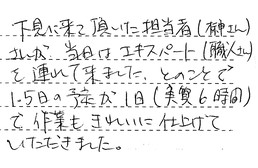 下見に来て頂いた担当者(榊さん)
さんが 当日は エキスパート(職人さん)
を 連れて来ました、とのことで
1.5日の予定が1日(実質6時間)
で 作業も きれいに 仕上げて
いただきました。